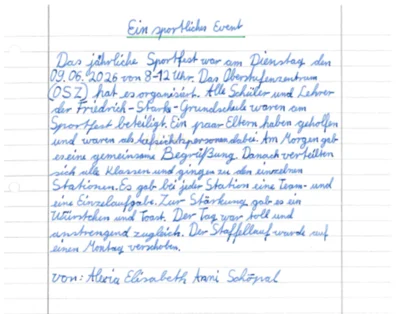 Ein sportliches Event
Das jährliche Sportfest war am Dienstag den
09.06.2026 von 8-12 Uhr. Das Oberstufenzentrum
(OSZ) hat es organisiert. Alle Schüler und Lehrer
der Friedrich-Starke-Grundschule waren am
Sportfest beteiligt. Ein paar Eltern haben geholfen
und waren als Aufsichtspersonen dabei. Am Morgen gab
es eine gemeinsame Begrüßung. Danach verteilten
sich alle Klassen und gingen zu den einzelnen
Stationen. Es gab bei jeder Station eine Team- und
eine Einzelaufgabe. Zur Stärkung gab es ein
Würstchen und Toast. Der Tag war toll und
anstrengend zugleich. Der Staffellauf wurde auf
einen Montag verschoben.
von: Alexia Elisabeth Anni Schöpal